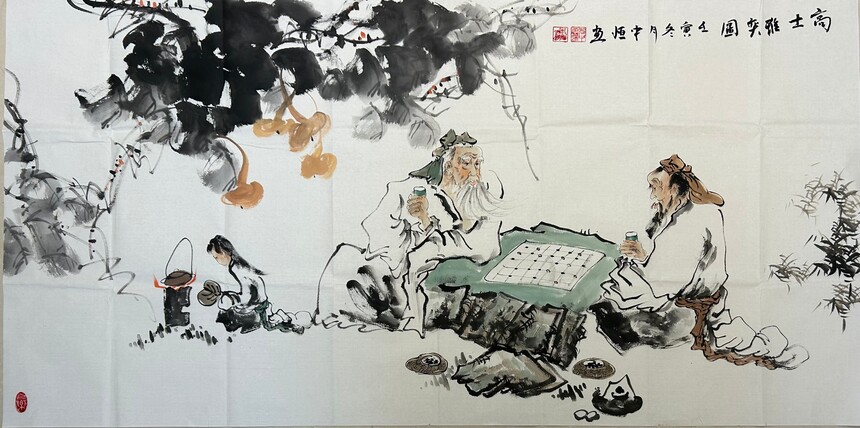 高士雅奕圖 壬寅冬月中恒畫